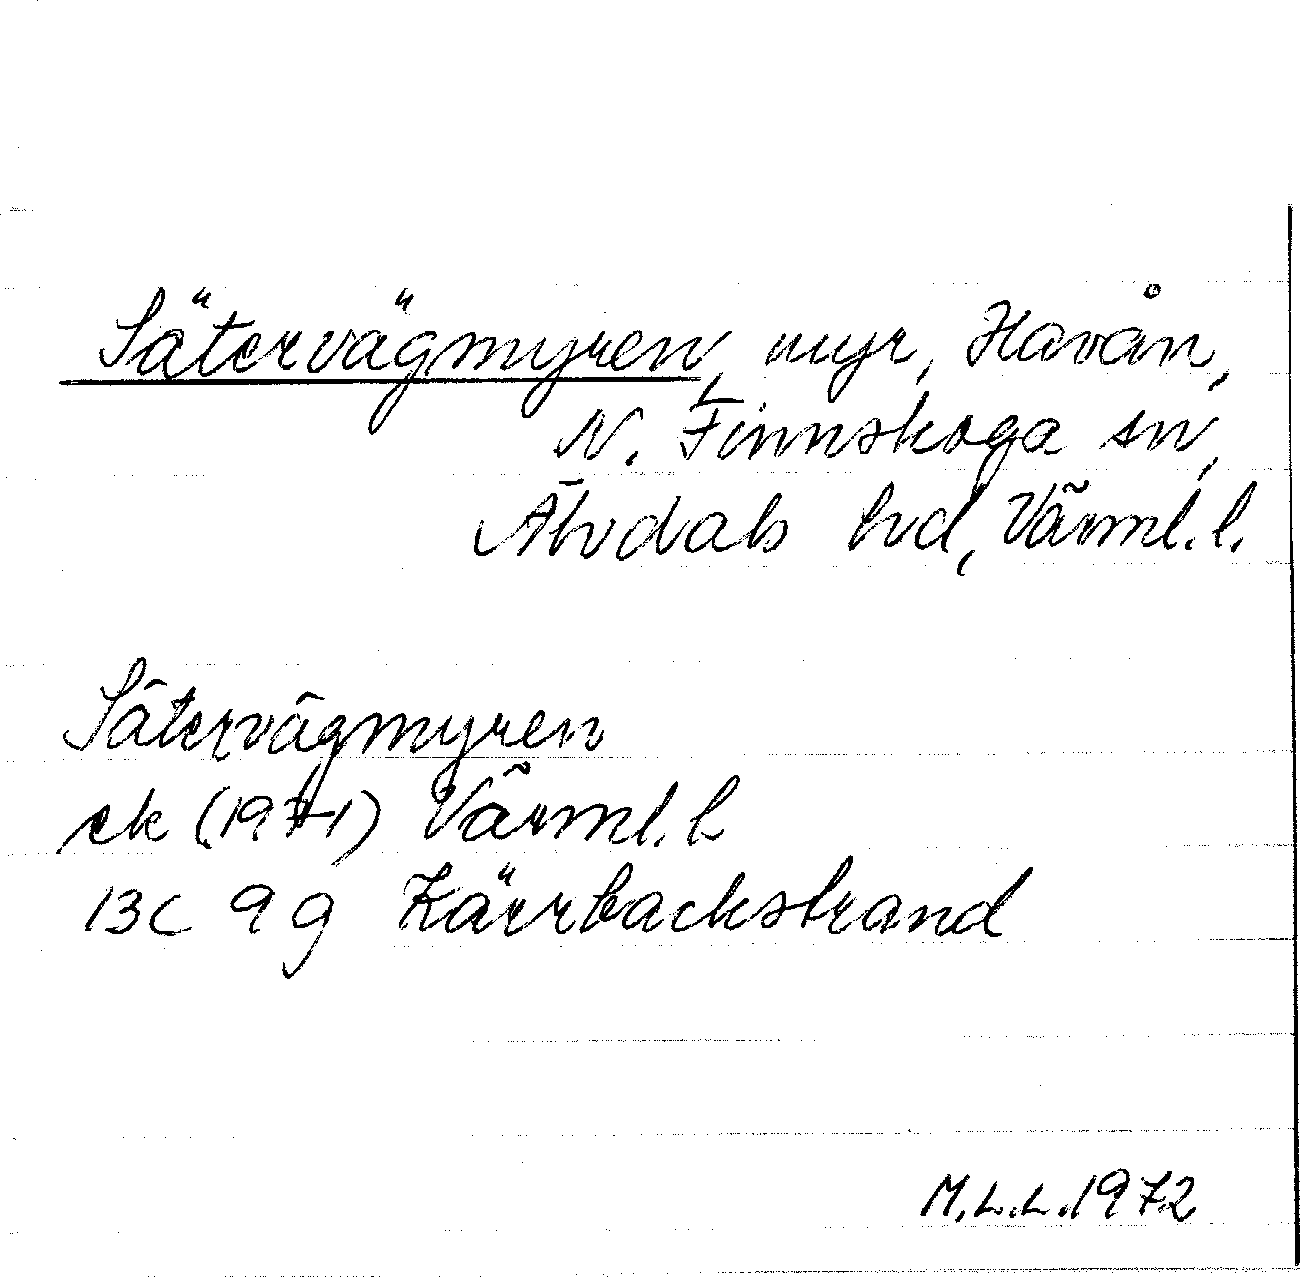 Sätervägmyren, myr, Havån,
N. Finnskoga sn,
Älvdals hd, Värml. l.
Sätervägmyren
ek (1971) Värml. l
13C 9g Kärrbackstrand
M.L.L. 1972